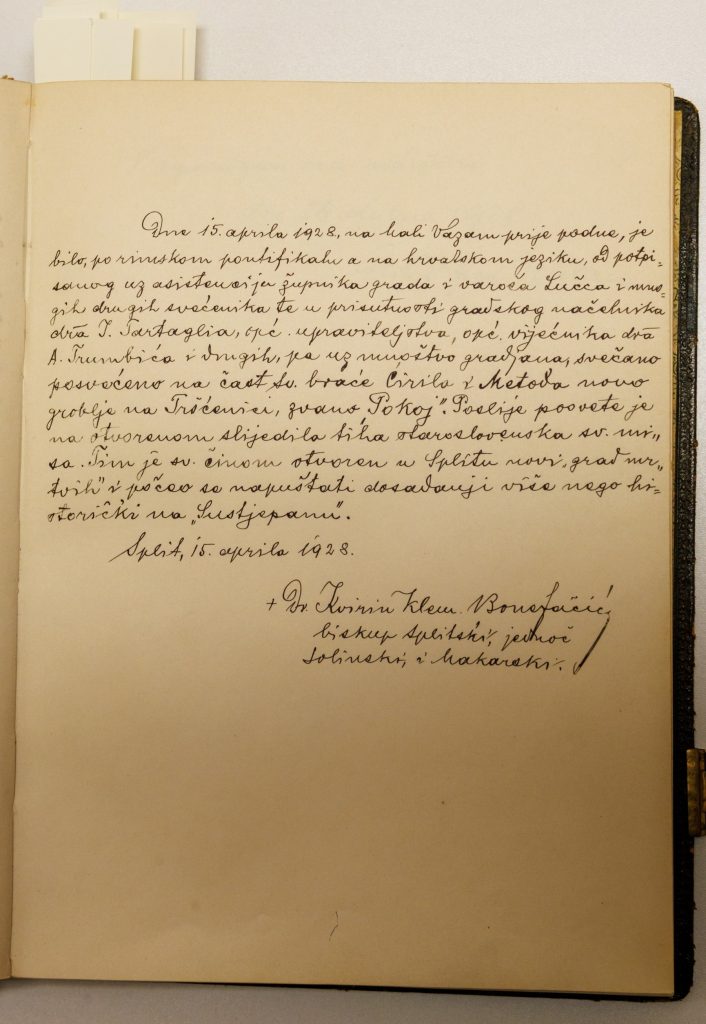 Dne 15. aprila 1928, na mali Vazam prije podne, je
bilo, po rimskom pontifikalu a na hrvatskom jeziku, od potpi-
sanog uz asistenciju župnika grada i varoša Lučca i mno-
gih drugih svećenika te u prisutnosti gradskog načelnika
dra J. Tartaglia, opć. upraviteljstva, opć. vijećnika dra
A. Trumbića i drugih, pa uz mnoštvo gradjana, svečano
posvećeno na čast sv. braće Ćirila i Metoda novo
groblje na Tršćenici, zvano „Pokoj". Poslije posvete je
na otvorenom slijedila tiha staroslovenska sv. mi-
sa. Tim je sv. činom otvoren u Splitu novi „grad mr-
tvih" i počeo se napuštati dosadanji više nego hi-
storički na „Sustjepanu".
Split, 15. aprila 1928.
+ Dr. Kvirin Klem. Bonefačić
biskup splitski, jednoč
solinski, i makarski.